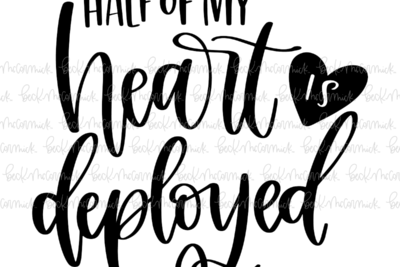 HALF OF MY
heart is
deployed